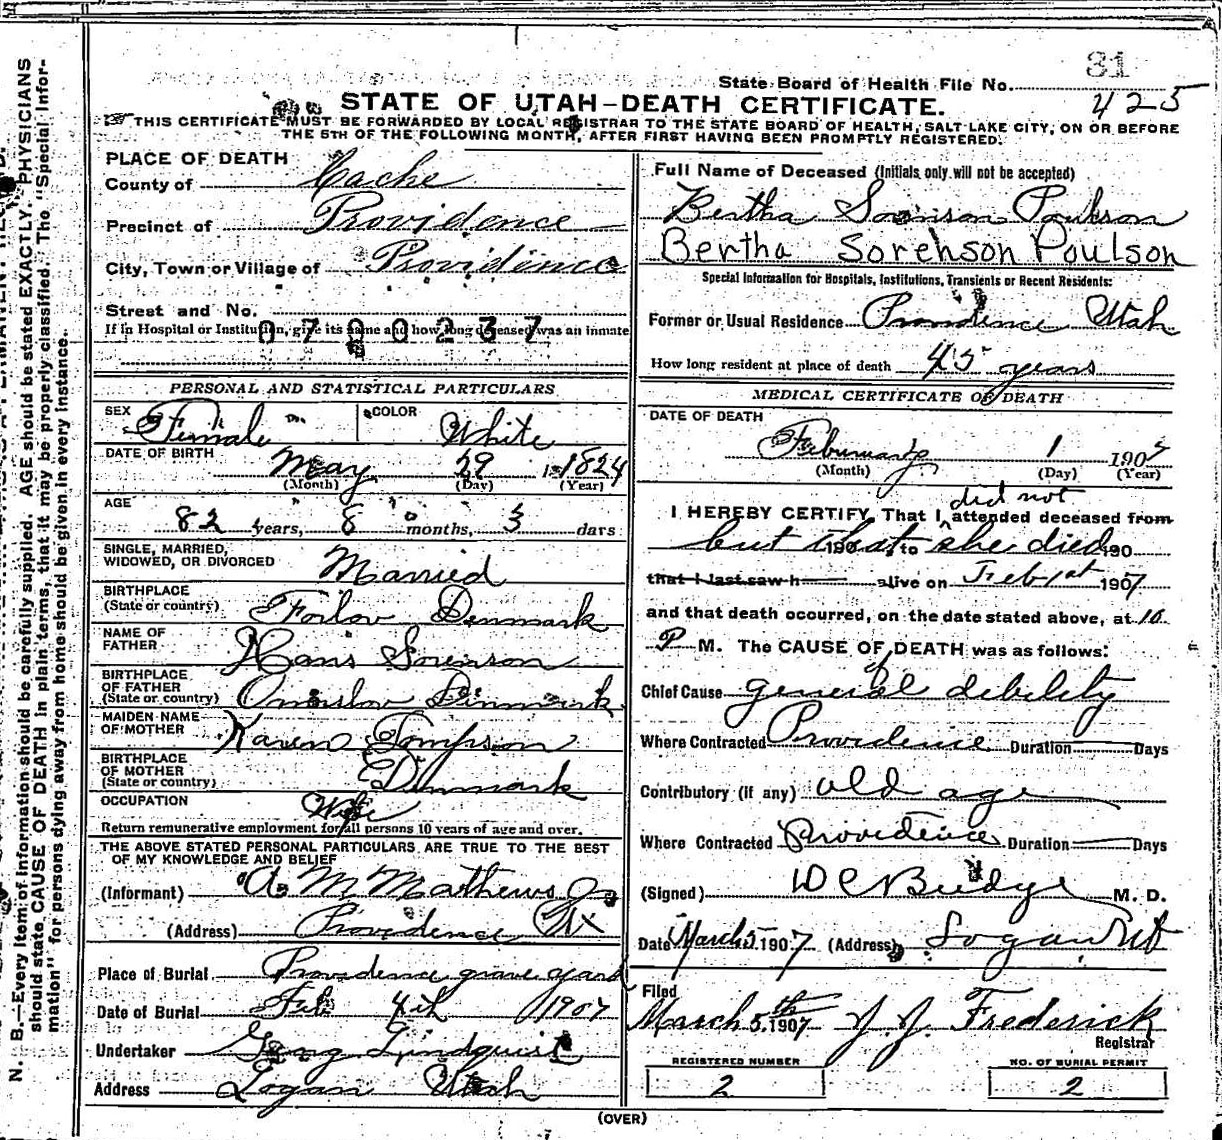 31
State Board of Health File No. 425
STATE OF UTAH–DEATH CERTIFICATE.
THIS CERTIFICATE MUST BE FORWARDED BY LOCAL REGISTRAR TO THE STATE BOARD OF HEALTH, SALT LAKE CITY, ON OR BEFORE
THE 5TH OF THE FOLLOWING MONTH, AFTER FIRST HAVING BEEN PROMPTLY REGISTERED.
PLACE OF DEATH
County of Cache
Precinct of Providence
City, Town or Village of Providence
Street and No.
If in Hospital or Institution, give its name and how long deceased was an inmate
0700237
PERSONAL AND STATISTICAL PARTICULARS
SEX Female COLOR White
DATE OF BIRTH May 29 1824
(Month) (Day) (Year)
AGE
82 years, 8 months, 3 days
SINGLE, MARRIED,
WIDOWED, OR DIVORCED Married
BIRTHPLACE
(State or country) Forlov Denmark
NAME OF
FATHER Hans Sorenson
BIRTHPLACE
OF FATHER
(State or country) Denmark
MAIDEN NAME
OF MOTHER Karen Tompson
BIRTHPLACE
OF MOTHER
(State or country) Denmark
OCCUPATION Wife
Return remunerative employment for all persons 10 years of age and over.
THE ABOVE STATED PERSONAL PARTICULARS ARE TRUE TO THE BEST
OF MY KNOWLEDGE AND BELIEF
(Informant) A M Mathews Jr
(Address) Providence Ut
Place of Burial Providence grave yard
Date of Burial Feb 4th 1907
Undertaker Lindquist
Address Logan Utah
Full Name of Deceased (Initials only will not be accepted)
Bertha Sorinson Poulson
Bertha Sorenson Poulson
Special Information for Hospitals, Institutions, Transients or Recent Residents:
Former or Usual Residence Providence Utah
How long resident at place of death 45 years
MEDICAL CERTIFICATE OF DEATH
DATE OF DEATH
February 1 1907
(Month) (Day) (Year)
did not
I HEREBY CERTIFY, That I attended deceased from
but that 190 to she died 190
that I last saw h alive on Feb 1st 1907
and that death occurred, on the date stated above, at 10
P M. The CAUSE OF DEATH was as follows:
Chief Cause general debility
Where Contracted Providence Duration Days
Contributory (if any) old age
Where Contracted Providence Duration Days
(Signed) D C Budge M. D.
Date March 5 1907 (Address) Logan Ut
Filed
March 5th 1907 J. J. Frederick
Registrar
REGISTERED NUMBER
2
NO. OF BURIAL PERMIT
2
(OVER)
N. B.—Every item of information should be carefully supplied. AGE should be stated EXACTLY. PHYSICIANS
should state CAUSE OF DEATH in plain terms, that it may be properly classified. The "Special Infor-
mation" for persons dying away from home should be given in every instance.